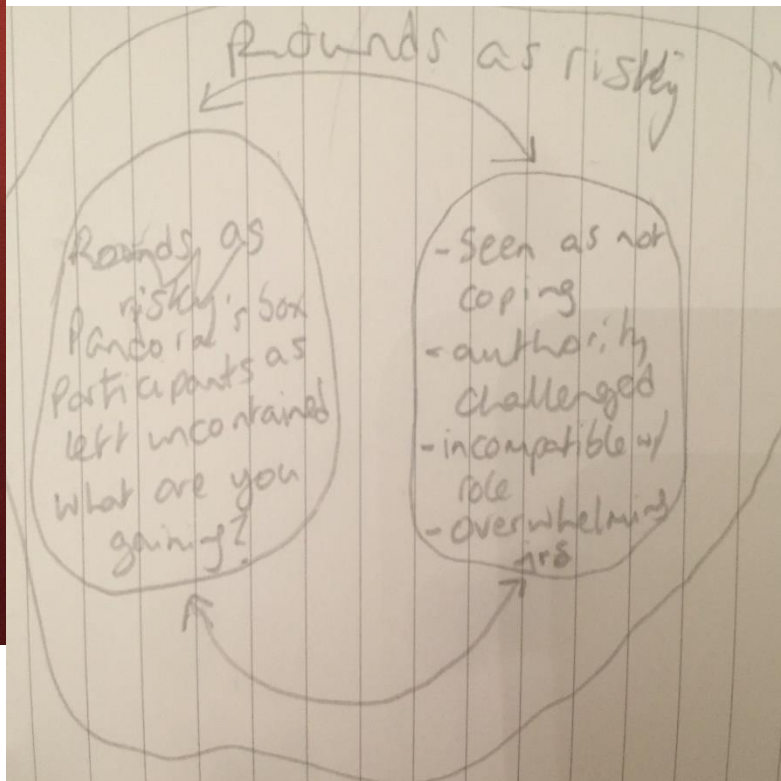 Rounds as risky
Rounds as
risky.
Pandora's box
Participants as
left uncontained
what are you
gaining?
- Seen as not
coping
- authority
challenged
- incompatible w/
role
- overwhelming